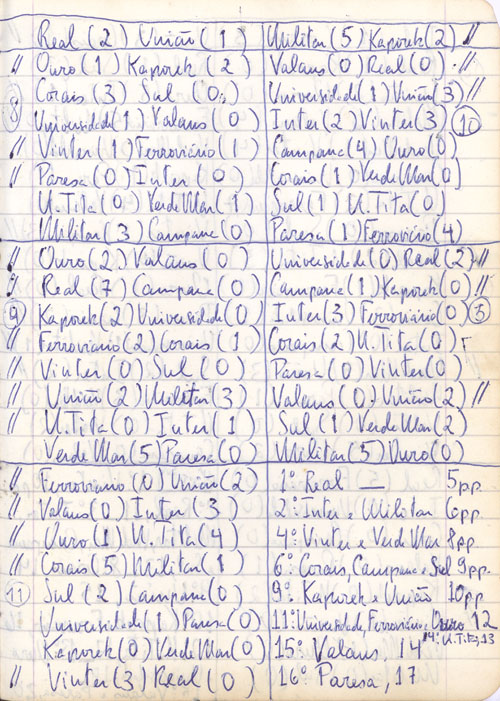 Real (2) União (1)
// Ouro (1) Kaporek (2)
Corais (3) Sul (0)
8 Universidade (1) Valans (0)
// Vinter (1) Ferroviário (1)
// Paresa (0) Inter (0)
U. Tita (0) Verde Mar (1)
Militar (3) Campane (0)
Militar (5) Kaporek (2) //
Valans (0) Real (2) //
Universidade (1) União (3) //
Inter (2) Vinter (3) 10
Campane (4) Ouro (0)
Corais (1) Verde Mar (0)
Sul (1) U. Tita (0)
Paresa (1) Ferroviário (4)
// Ouro (2) Valans (0)
Real (7) Campane (0)
9 Kaporek (2) Universidade (0)
// Ferroviário (2) Corais (1)
// Vinter (0) Sul (0)
// União (2) Militar (3)
// U. Tita (0) Inter (1)
Verde Mar (5) Paresa (0)
Universidade (0) Real (2) //
Campane (1) Kaporek (0) //
Inter (3) Ferroviário (0)
Corais (2) U. Tita (0)
Paresa (0) Vinter (0)
Valans (0) União (2) //
Sul (1) Verde Mar (2)
Militar (5) Ouro (0)
// Ferroviário (0) União (2)
// Valans (0) Inter (3)
// Ouro (1) U. Tita (4)
// Corais (5) Militar (1)
11 Sul (2) Campane (0)
Universidade (1) Paresa (0)
Kaporek (0) Verde Mar (0)
// Vinter (3) Real (0)
1º Real — 5pp.
2º Inter e Militar 6pp.
4º Vinter e Verde Mar 8pp.
6º Corais, Campane e Sul 9pp.
9º Kaporek e União 10pp
11º Universidade, Ferroviário e Ouro 12
14º U. Tita, 13
15º Valans, 14
16º Paresa, 17